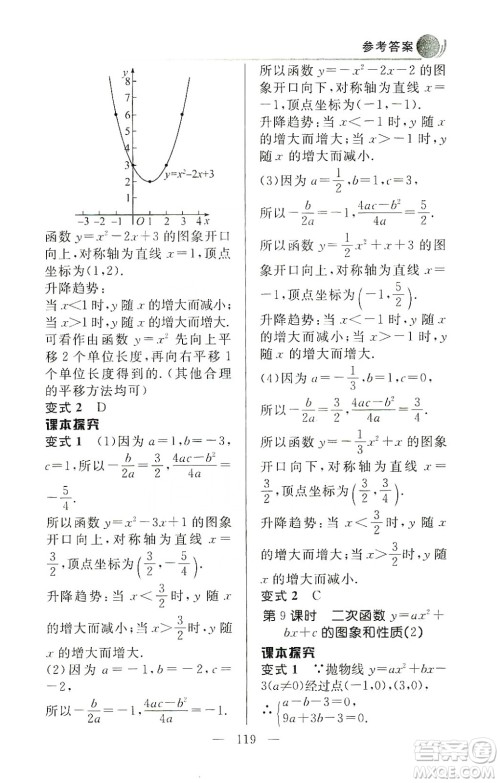 参考答案
y
8
7
6
5
4
3
2
1
y=x²-2x+3
-3 -2 -1 O 1 2 3 4 x
函数 y=x²-2x+3 的图象开口
向上，对称轴为直线 x=1，顶点
坐标为(1,2).
升降趋势：
当 x<1 时，y 随 x 的增大而减小；
当 x>1 时，y 随 x 的增大而增大.
可看作由函数 y=x² 先向上平
移 2 个单位长度，再向右平移 1
个单位长度得到的.(其他合理
的平移方法均可)
变式 2 D
课本探究
变式 1 (1)因为 a=1，b=-3，
c=1，所以-b/2a=3/2，(4ac-b²)/4a=-
5/4.
所以函数 y=x²-3x+1 的图象
开口向上，对称轴为直线 x=
3/2，顶点坐标为(3/2,-5/4).
升降趋势：当 x<3/2时，y 随 x 的
增大而减小；当 x>3/2时，y 随 x
的增大而增大.
(2)因为 a=-1，b=-2，c=-2，
所以-b/2a=-1，(4ac-b²)/4a=-1.
所以函数 y=-x²-2x-2 的图
象开口向下，对称轴为直线 x=
-1，顶点坐标为(-1,-1).
升降趋势：当 x<-1 时，y 随 x
的增大而增大；当 x>-1 时，y
随 x 的增大而减小.
(3)因为 a=1/2，b=1，c=3，
所以-b/2a=-1，(4ac-b²)/4a=5/2.
所以函数 y=1/2x²+x+3 的图
象开口向上，对称轴为直线 x=
-1，顶点坐标为(-1,5/2).
升降趋势：当 x<-1 时，y 随 x
的增大而减小；当 x>-1 时，y
随 x 的增大而增大.
(4)因为 a=-1/3，b=1，c=0，
所以-b/2a=3/2，(4ac-b²)/4a=3/4.
所以函数 y=-1/3x²+x 的图象
开口向下，对称轴为直线 x=
3/2，顶点坐标为(3/2,3/4).
升降趋势：当 x<3/2时，y 随 x 的
增大而增大；当 x>3/2时，y 随 x
的增大而减小.
变式 2 C
第 9 课时 二次函数 y=ax²+
bx+c 的图象和性质(2)
课本探究
变式 1 ∵抛物线 y=ax²+bx-
3(a≠0)经过点(-1,0)，(3,0)，
∴{a-b-3=0,
9a+3b-3=0,
— 119 —